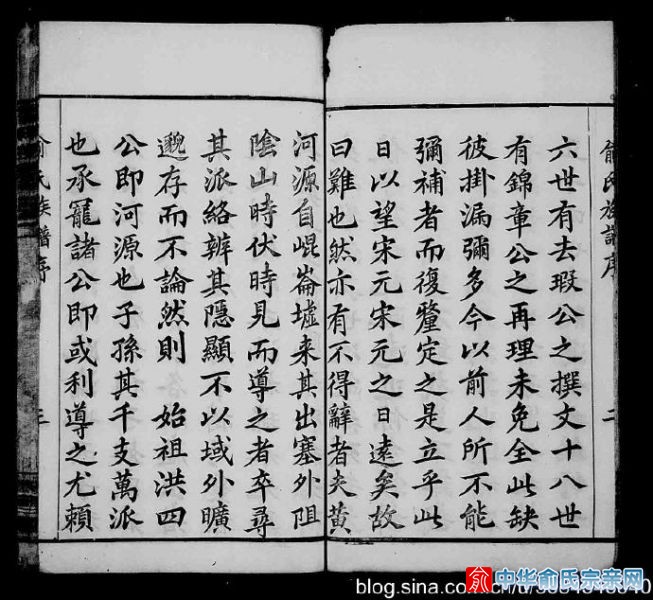 俞氏族譜序
二
六世有去瑕公之撰文十八世
有錦章公之再理未免全此缺
彼掛漏彌多今以前人所不能
彌補者而復釐定之是立乎此
日以望宋元宋元之日遠矣故
曰難也然亦有不得辭者夫黄
河源自崐崙墟来其出塞外阻
陰山時伏時見而導之者卒尋
其派絡辨其隱顯不以域外曠
邈存而不論然則 始祖洪四
公即河源也子孫其千支萬派
也承寵諸公即或利導之尤賴
俞氏族譜序
三
俞 中华俞氏宗亲网